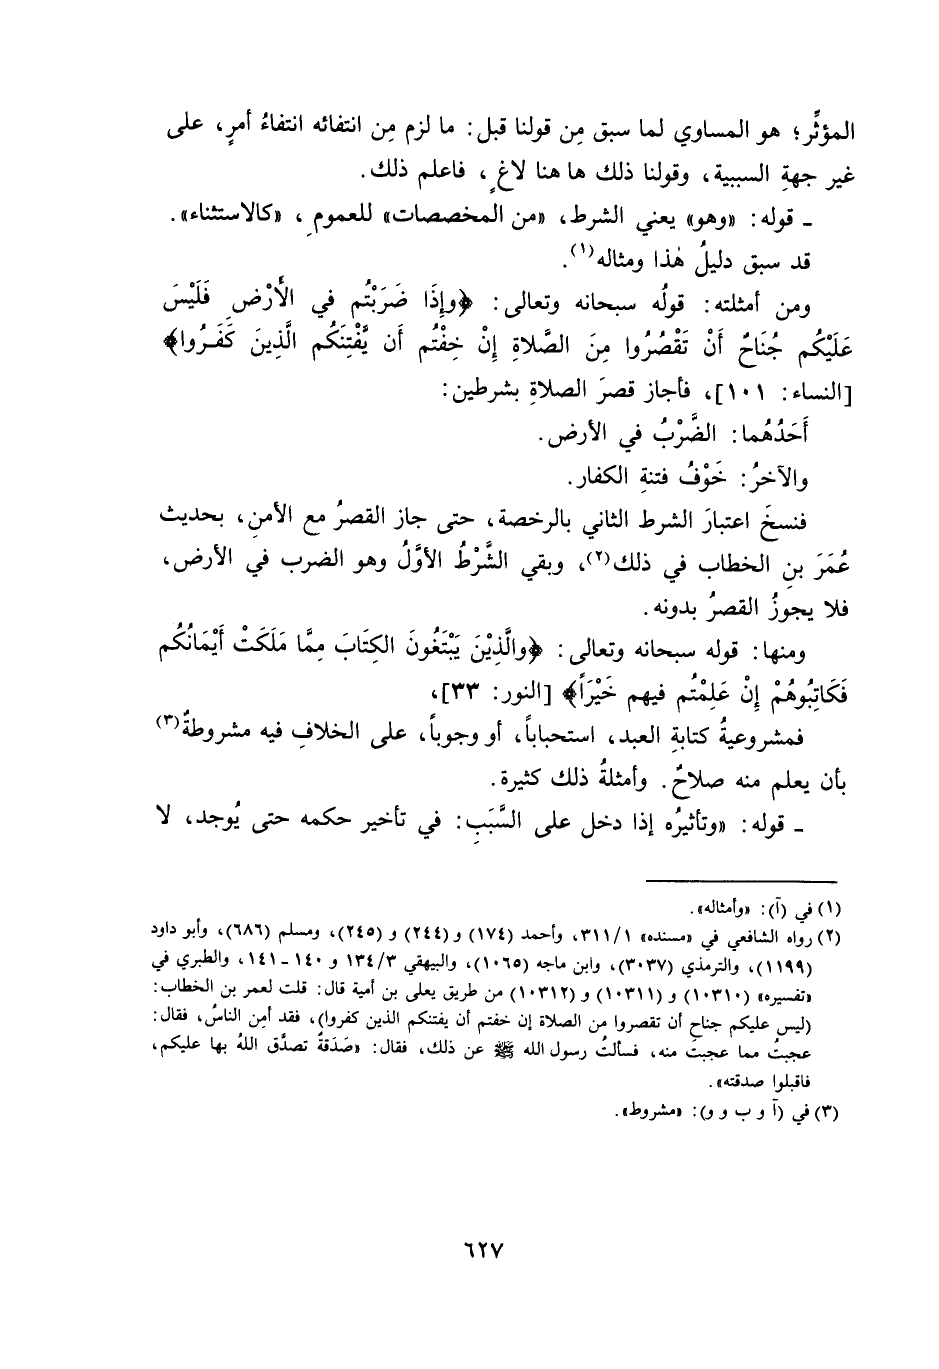 المؤثِّر؛ هو المساوي لما سبق مِن قولنا قبل: ما لزم مِن انتفائه انتفاءُ أمرٍ، على
غير جهةِ السببية، وقولنا ذلك ها هنا لاغٍ، فاعلم ذلك.
ـ قوله: «وهو» يعني الشرط، «من المخصصات» للعمومِ، «كالاستثناء».
قد سبق دليلُ هٰذا ومثاله(١).
ومن أمثلته: قولُه سبحانه وتعالى: ﴿وإِذَا ضَرَبْتُم في الأَرْضِ فَلَيْسَ
عَلَيْكُم جُنَاحٌ أَنْ تَقْصُرُوا مِنَ الصَّلاةِ إِنْ خِفْتُم أَن يَفْتِنَكُم الَّذِينَ كَفَرُوا﴾
[النساء: ١٠١]، فأجاز قصرَ الصلاةِ بشرطين:
أَحَدُهُما: الضَّرْبُ في الأرض.
والآخرُ: خَوْفُ فتنةِ الكفار.
فنسخَ اعتبارَ الشرط الثاني بالرخصة، حتى جاز القصرُ مع الأمنِ، بحديث
عُمَرَ بنِ الخطاب في ذلك(٢)، وبقي الشَّرْطُ الأوَّلُ وهو الضرب في الأرض،
فلا يجوزُ القصرُ بدونه.
ومنها: قوله سبحانه وتعالى: ﴿والَّذِيْنَ يَبْتَغُونَ الكِتَابَ مِمَّا مَلَكَتْ أَيْمَانُكُم
فَكَاتِبُوهُمْ إِنْ عَلِمْتُم فيهم خَيْرَاً﴾ [النور: ٣٣]،
فمشروعيةُ كتابةِ العبد، استحباباً، أو وجوباً، على الخلافِ فيه مشروطةٌ(٣)
بأن يعلم منه صلاحٌ. وأمثلةُ ذلك كثيرة.
ـ قوله: «وتأثيرُه إذا دخل على السَّبَبِ: في تأخير حكمه حتى يُوجد، لا
(١) في (آ): «وأمثاله».
(٢) رواه الشافعي في «مسنده» ٣١١/١، وأحمد (١٧٤) و(٢٤٤) و (٢٤٥)، ومسلم (٦٨٦)، وأبو داود
(١١٩٩)، والترمذي (٣٠٣٧)، وابن ماجه (١٠٦٥)، والبيهقي ١٣٤/٣ و ١٤٠ ـ ١٤١، والطبري في
«تفسيره» (١٠٣١٠) و (١٠٣١١) و (١٠٣١٢) من طريق يعلى بن أمية قال: قلت لعمر بن الخطاب:
(ليس عليكم جناح أن تقصروا من الصلاة إن خفتم أن يفتنكم الذين كفروا)، فقد أمِن الناسُ، فقال:
عجبتُ مما عجبتَ منه، فسألتُ رسول الله ﷺ عن ذلك، فقال: «صَدَقةٌ تصدَّق اللهُ بها عليكم،
فاقبلوا صدقته».
(٣) في (آ و ب و و): «مشروط».
٦٢٧